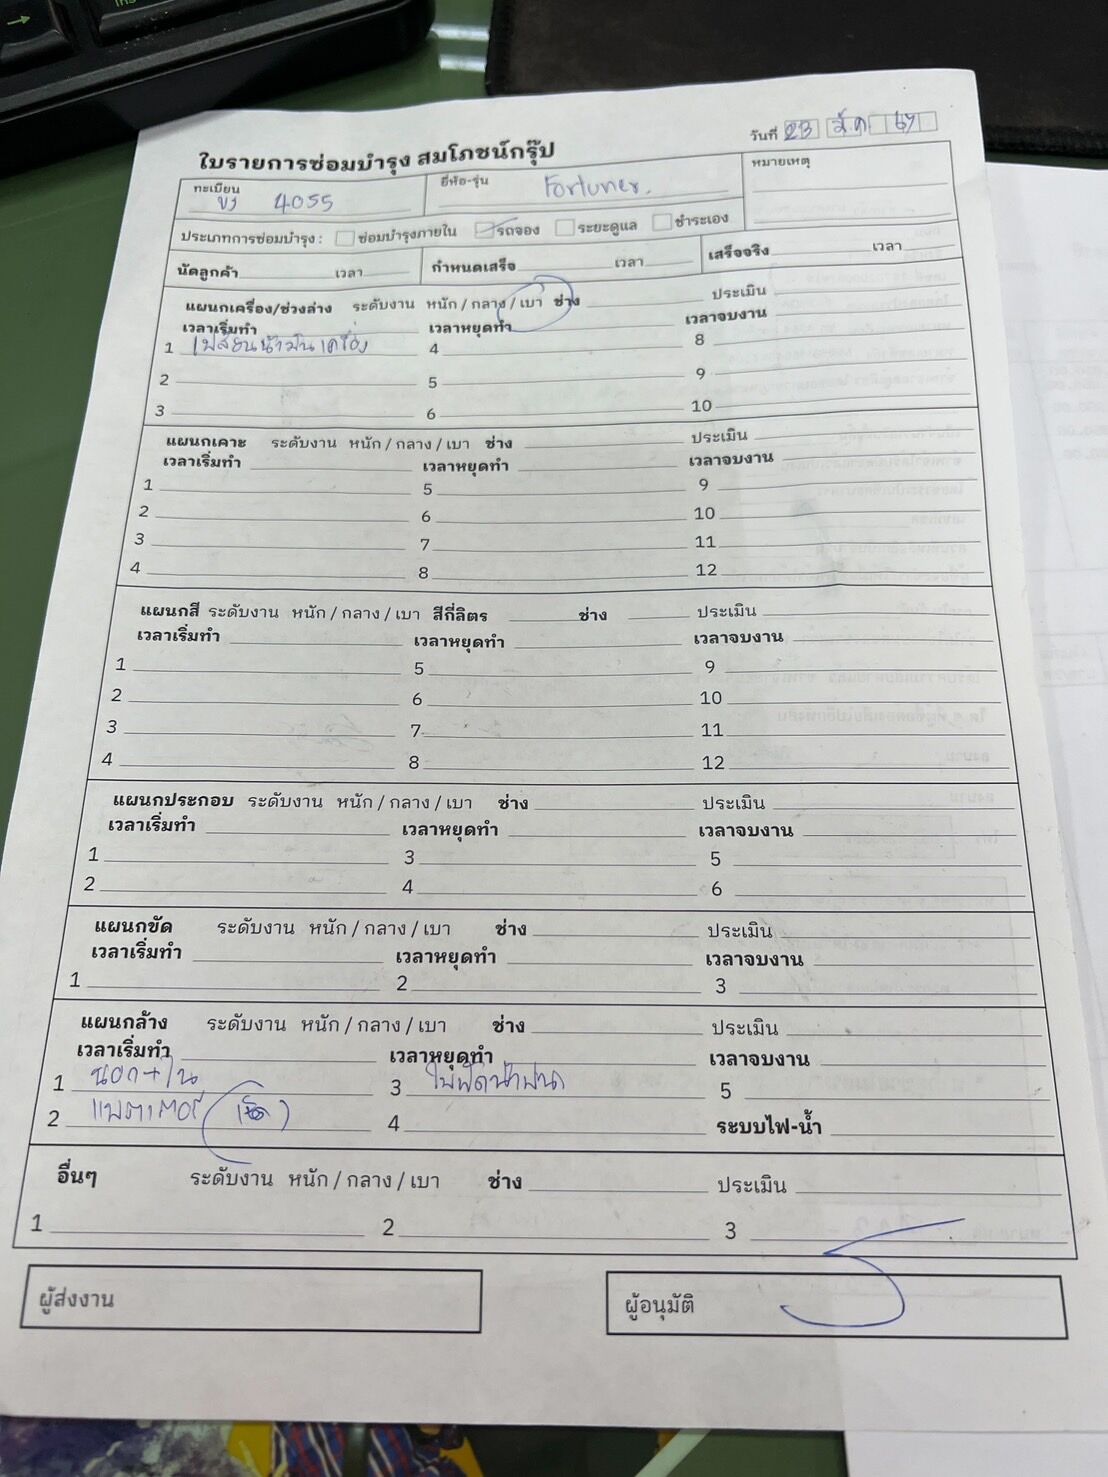 วันที่ 23 ธ.ค. 67
ใบรายการซ่อมบำรุง สมโภชน์กรุ๊ป
ทะเบียน 4055 ยี่ห้อ-รุ่น Fortuner. หมายเหตุ
ประเภทการซ่อมบำรุง : ซ่อมบำรุงภายใน รถจอง ระยะดูแล ชำระเอง
นัดลูกค้า เวลา กำหนดเสร็จ เวลา เสร็จจริง เวลา
แผนกเครื่อง/ช่วงล่าง ระดับงาน หนัก / กลาง / เบา ช่าง ประเมิน
เวลาเริ่มทำ เวลาหยุดทำ เวลาจบงาน
1 เปลี่ยนน้ำมันเครื่อง 4 8
2 5 9
3 6 10
แผนกเคาะ ระดับงาน หนัก / กลาง / เบา ช่าง ประเมิน
เวลาเริ่มทำ เวลาหยุดทำ เวลาจบงาน
1 5 9
2 6 10
3 7 11
4 8 12
แผนกสี ระดับงาน หนัก / กลาง / เบา สีกี่ลิตร ช่าง ประเมิน
เวลาเริ่มทำ เวลาหยุดทำ เวลาจบงาน
1 5 9
2 6 10
3 7 11
4 8 12
แผนกประกอบ ระดับงาน หนัก / กลาง / เบา ช่าง ประเมิน
เวลาเริ่มทำ เวลาหยุดทำ เวลาจบงาน
1 3 5
2 4 6
แผนกขัด ระดับงาน หนัก / กลาง / เบา ช่าง ประเมิน
เวลาเริ่มทำ เวลาหยุดทำ เวลาจบงาน
1 2 3
แผนกล้าง ระดับงาน หนัก / กลาง / เบา ช่าง ประเมิน
เวลาเริ่มทำ เวลาหยุดทำ เวลาจบงาน
1 นอก+ใน 3 ใบปัดน้ำฝน 5
2 แบตเตอรี่ (เช็ค) 4 ระบบไฟ-น้ำ
อื่นๆ ระดับงาน หนัก / กลาง / เบา ช่าง ประเมิน
1 2 3
ผู้ส่งงาน ผู้อนุมัติ